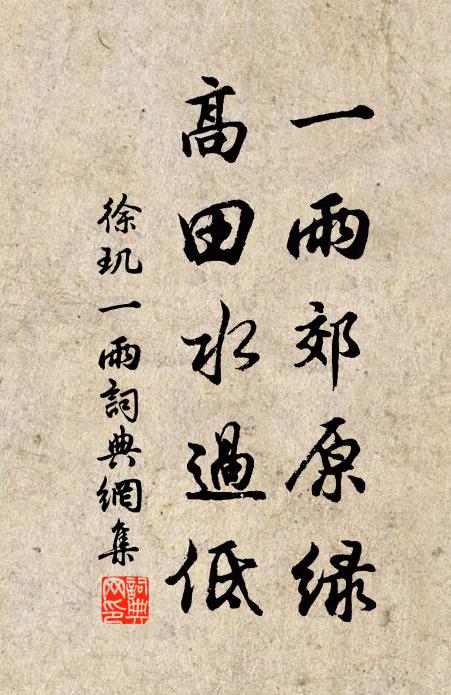 一雨郊原绿
高田水過低
徐玑一雨詞典網集
詞典網印